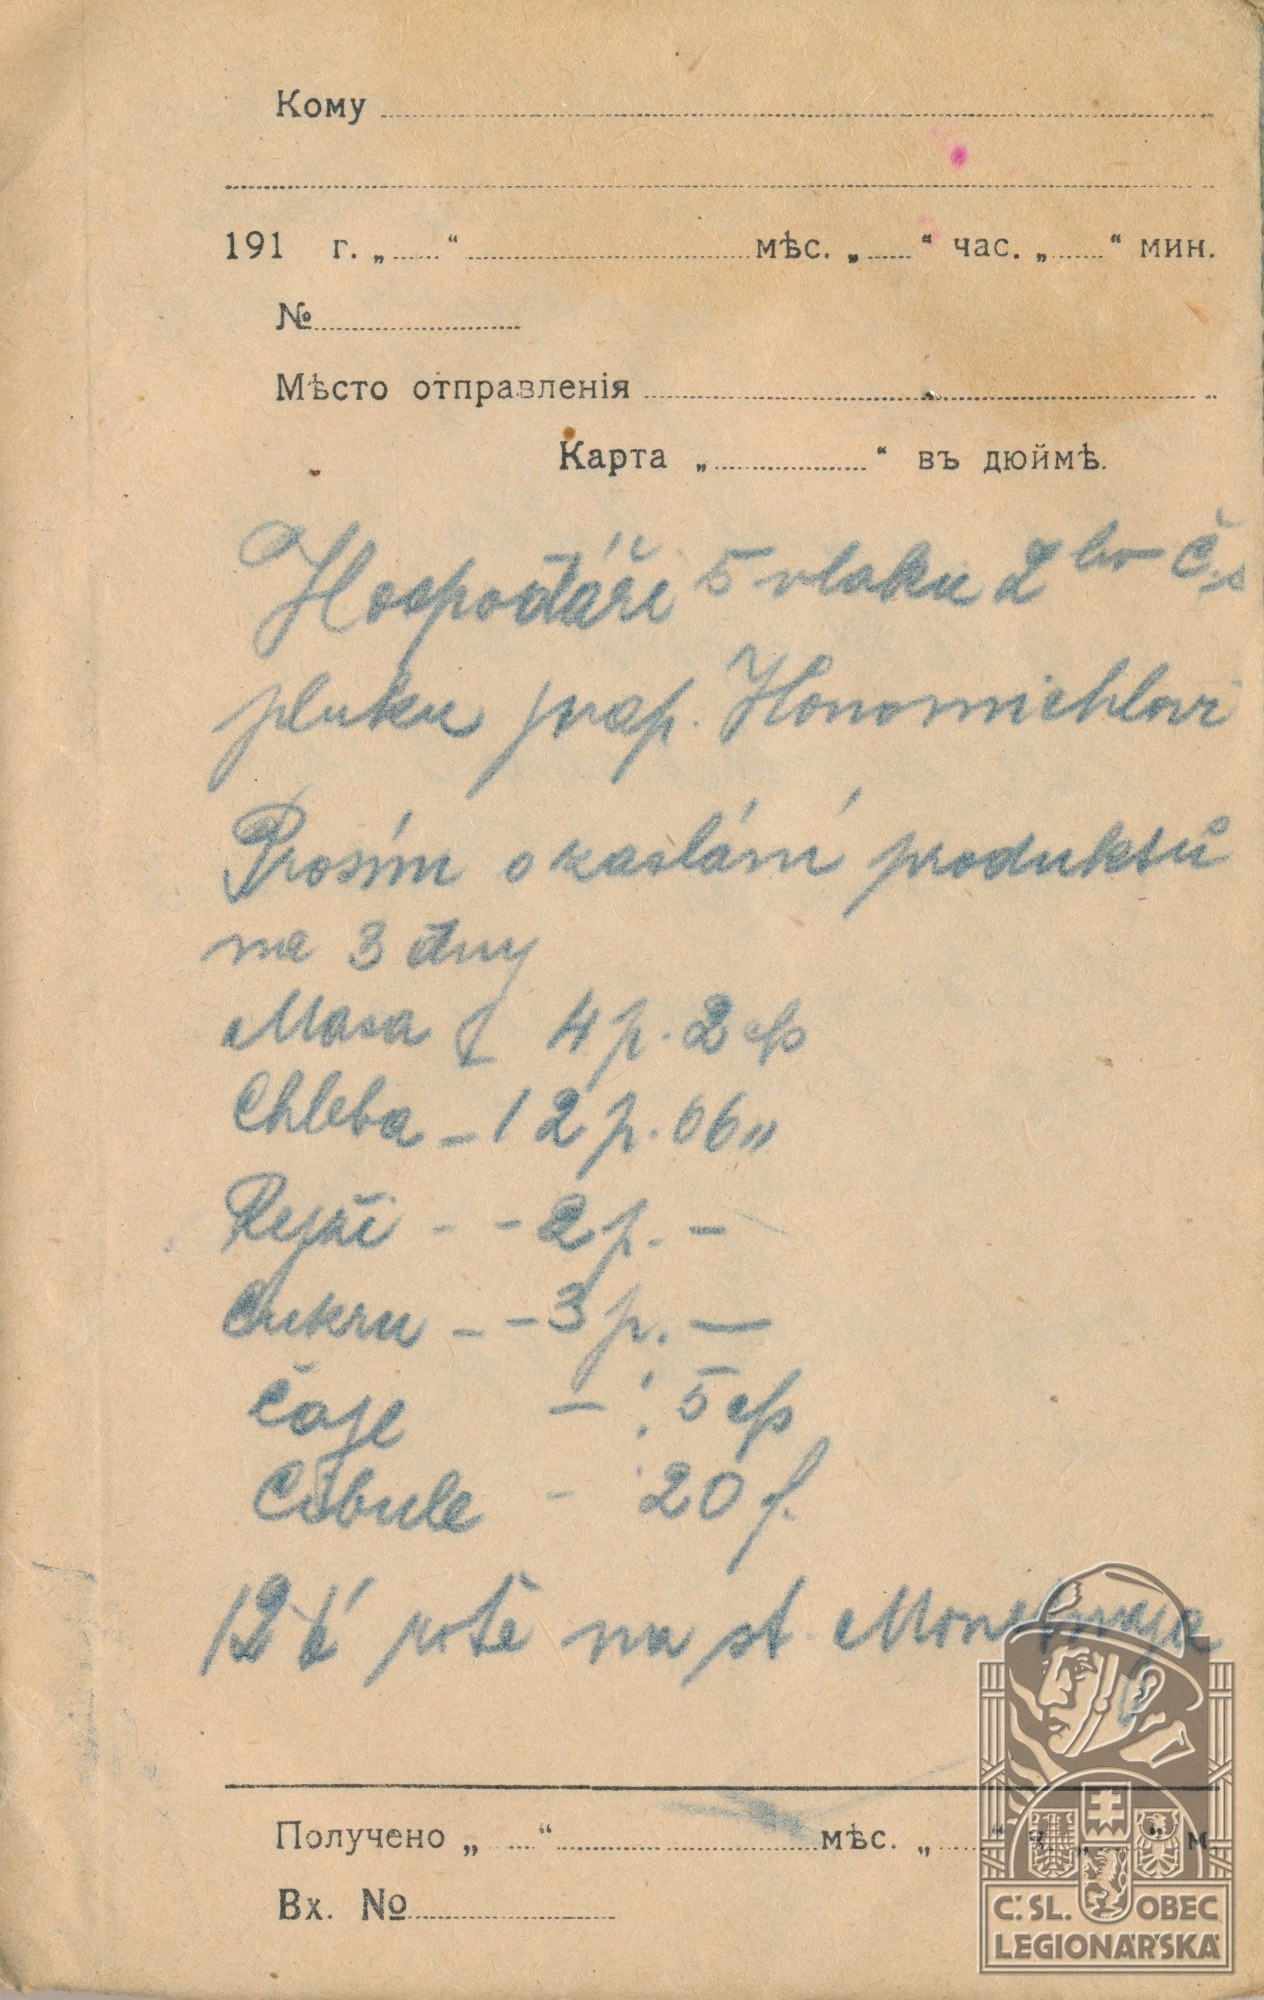 Кому
191 г. „ “ мѣс. „ “ час. „ “ мин.
№
Мѣсто отправленія
Карта „ “ въ дюймѣ.
Hospodáři 5 vlaku 2ho Čs
pluku prap. Honomichlovi
Prosím o zaslání produktů
na 3 dny
Masa 4 p. 2 ф
Chleba – 12 p. 06 „
Rejži - - 2 p. –
Cukru – – 3 p. —
čaje – 5 ф
Cibule - 20 f.
12tá rotě na st.
Получено „ “ мѣс. „ “ ч. „ “ м.
Вх. №
Č. SL. OBEC
LEGIONÁŘSKÁ